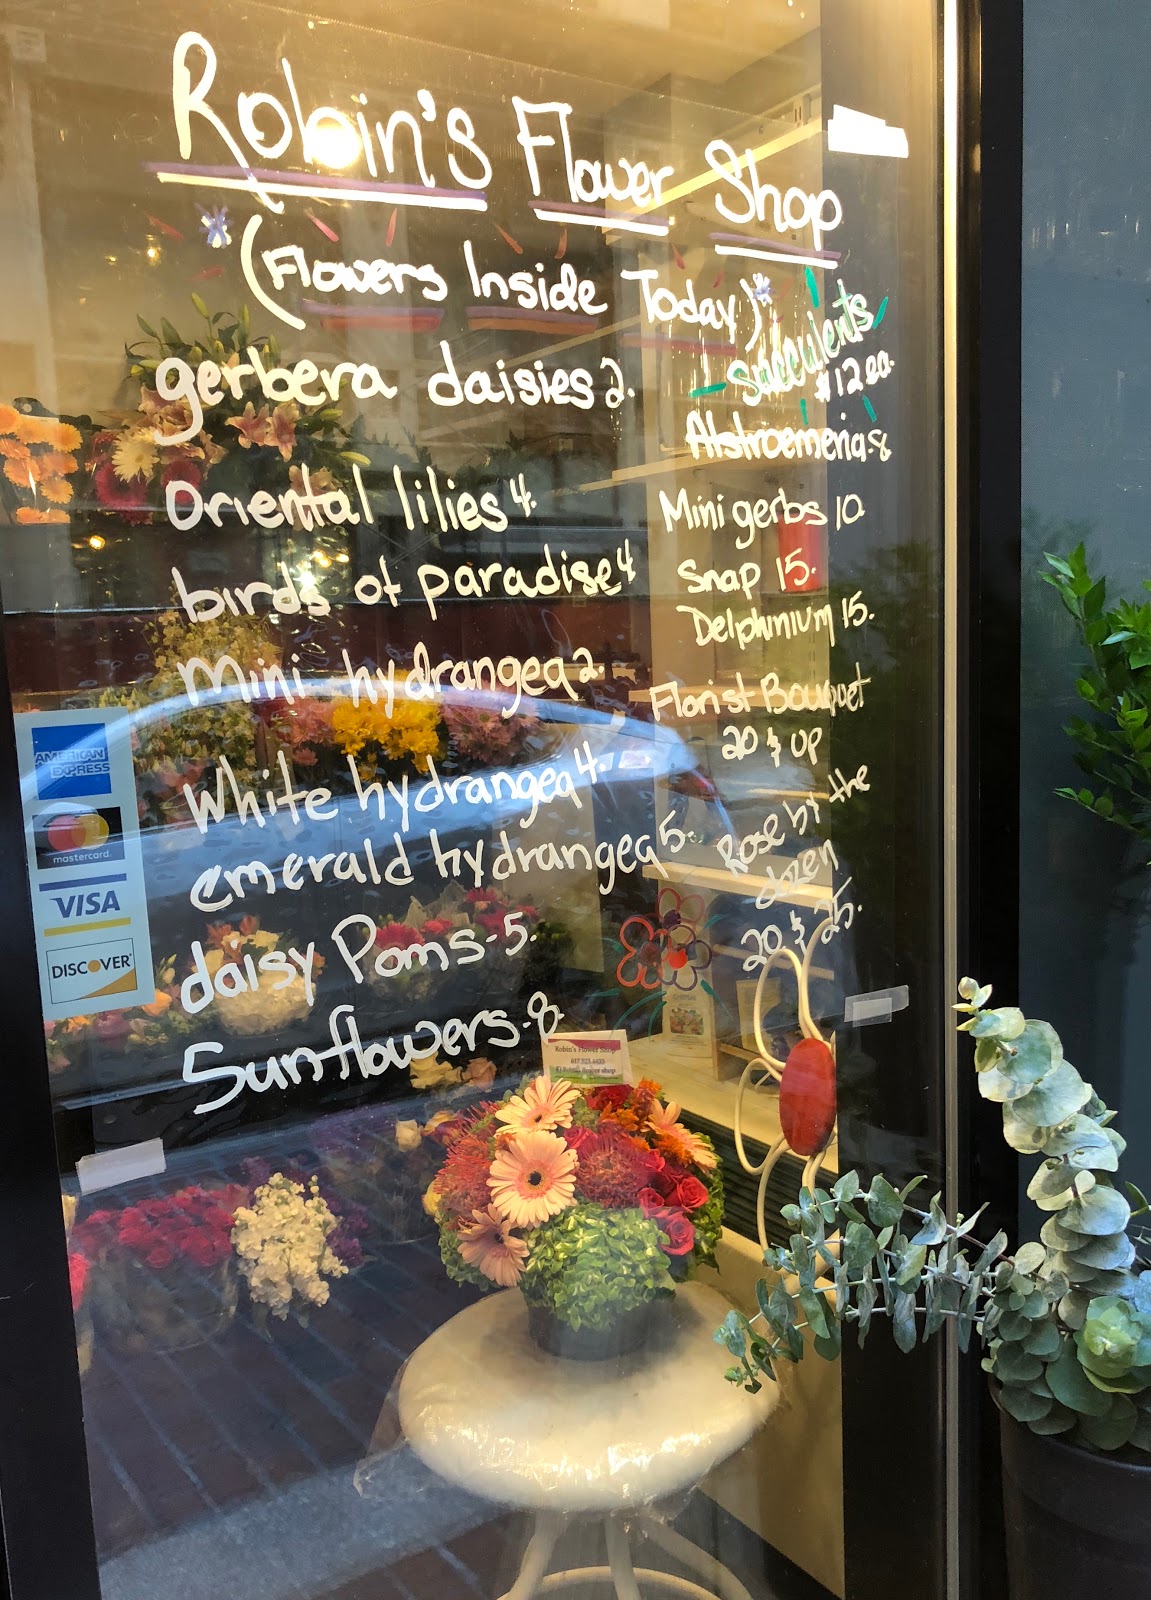 Robin's Flower Shop
(Flowers Inside Today)
gerbera daisies 2.
Oriental lilies 4.
birds of paradise 4
Mini hydrangea 2.
White hydrangea 4.
emerald hydrangea 5.
daisy Poms - 5.
Sunflowers - 8.
Succulents
$12 ea.
Alstroemeria - 8
Mini gerbs 10
Snap 15.
Delphinium 15.
Florist Bouquet
20 & up
Rose by the
dozen
20 & 25.
AMERICAN
EXPRESS
mastercard
VISA
DISCOVER
Robin's Flower Shop